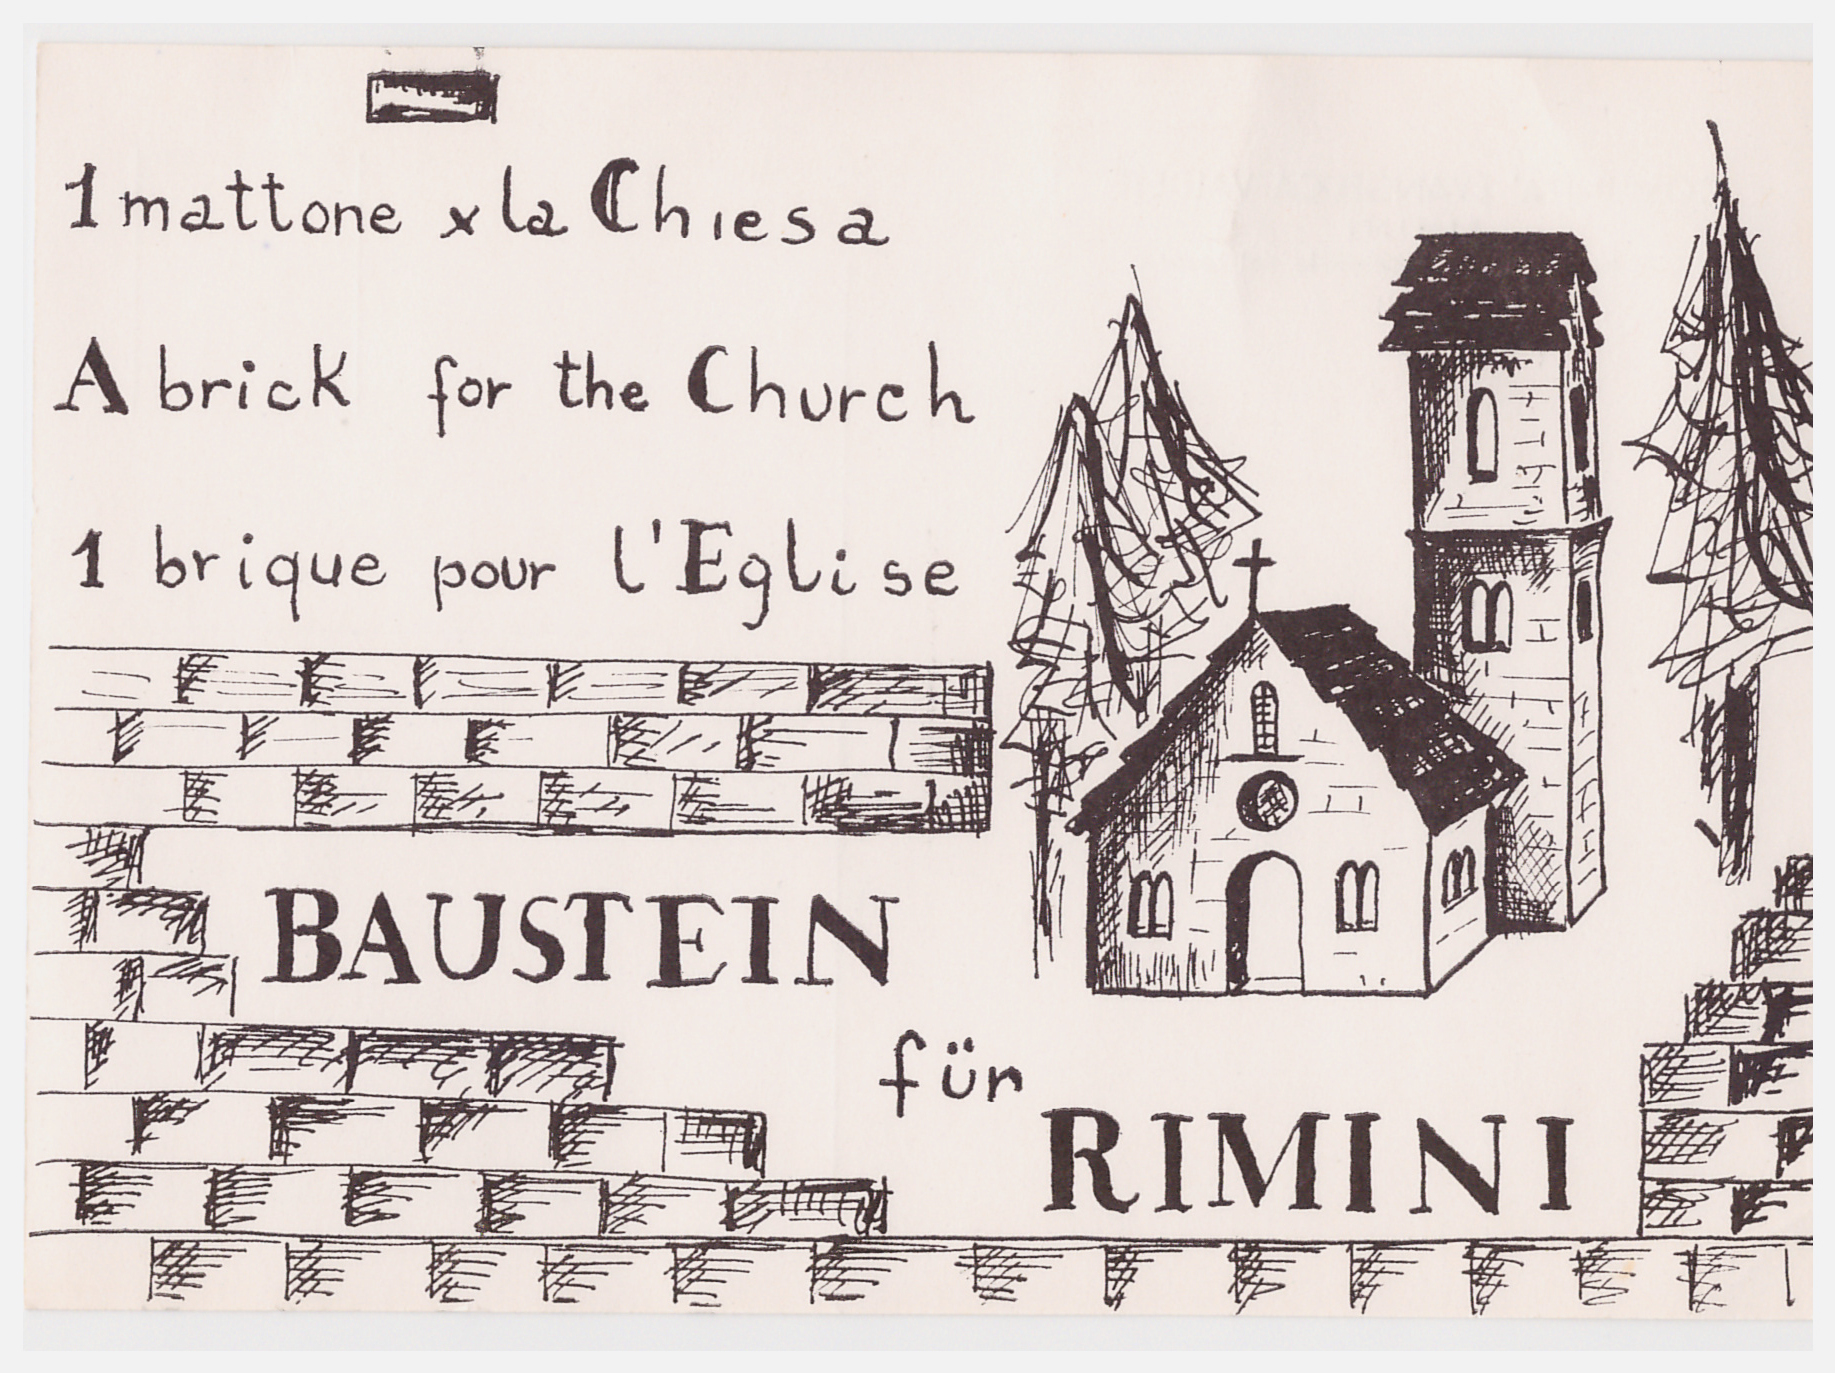 1 mattone x la Chiesa
A brick for the Church
1 brique pour l'Eglise
BAUSTEIN
für
RIMINI